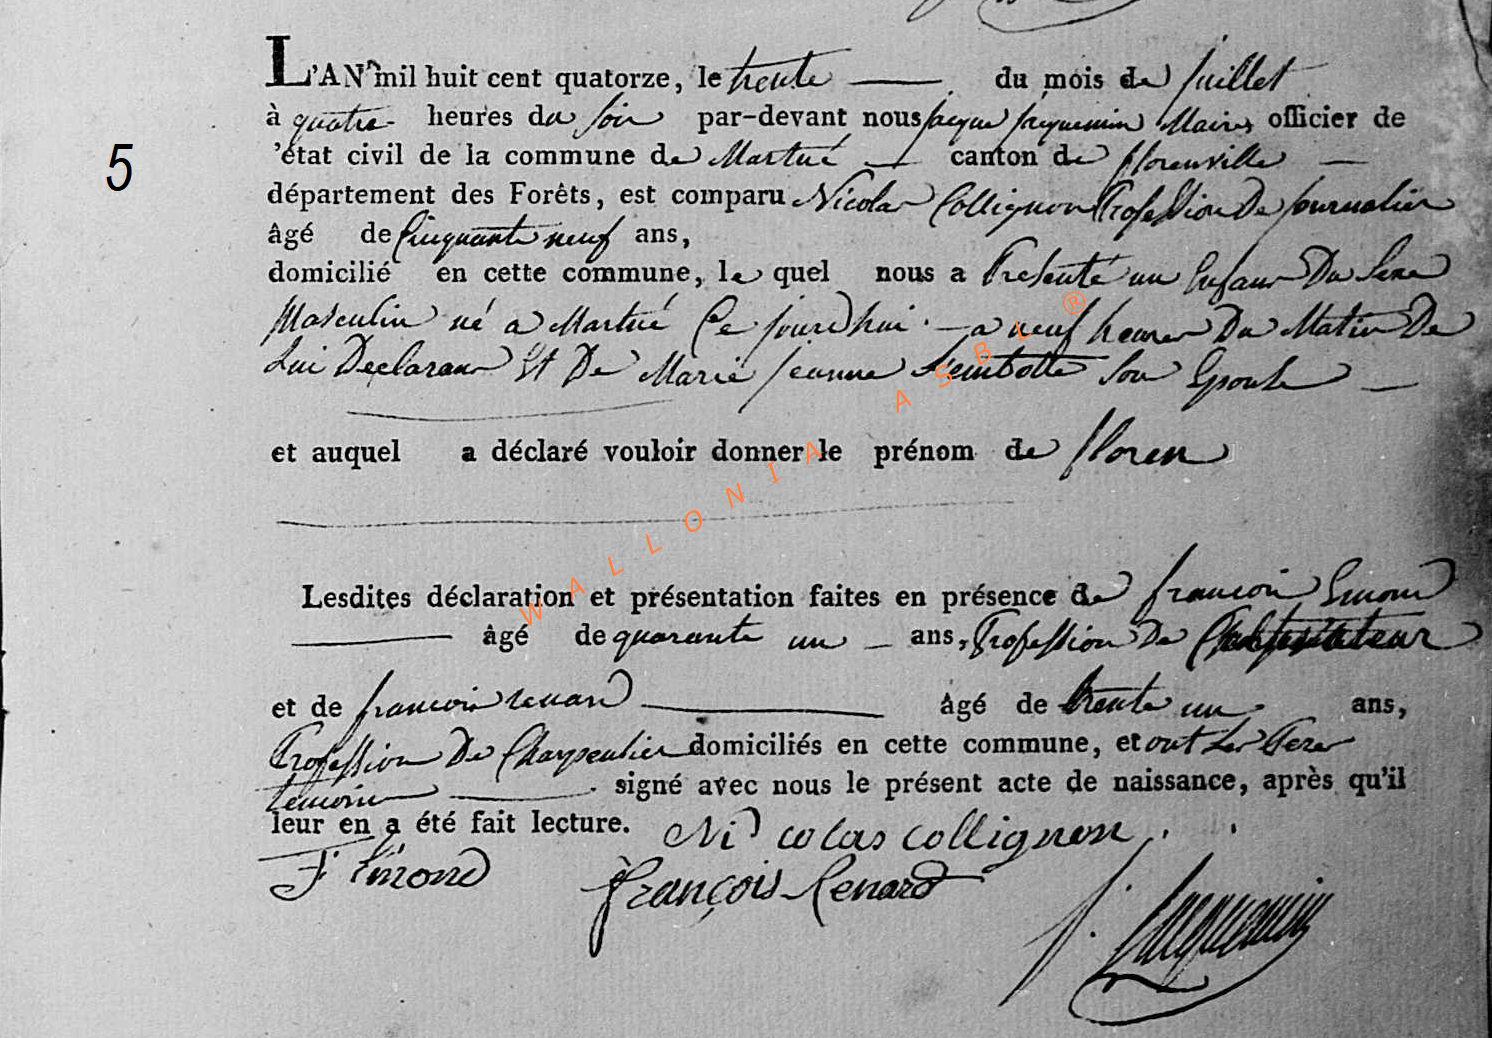 L'AN mil huit cent quatorze, le trente du mois de juillet
à quatre heures du soir par-devant nous jacque jacquemin Maire officier de
'état civil de la commune de Martué canton de florenville
département des Forêts, est comparu Nicolas Collignon Profession De journalier
5
âgé de Cinquante neuf ans,
domicilié en cette commune, le quel nous a Presenté un Enfant Du Sexe
Masculin né a Martué Ce jourd'hui a neuf heures Du Matin De
Lui Declarant Et De Marie jeanne son Epouse
et auquel a déclaré vouloir donner le prénom de floren
WALLONIA ASBL ®
Lesdites déclaration et présentation faites en présence de francois
âgé de quarante un ans, Profession De
et de francois renard âgé de trente un ans,
Profession De Charpentier domiciliés en cette commune, et ont Les Peres
temoins signé avec nous le présent acte de naissance, après qu'il
leur en a été fait lecture. Nicolas collignon
François Renard
J. Jacquemin